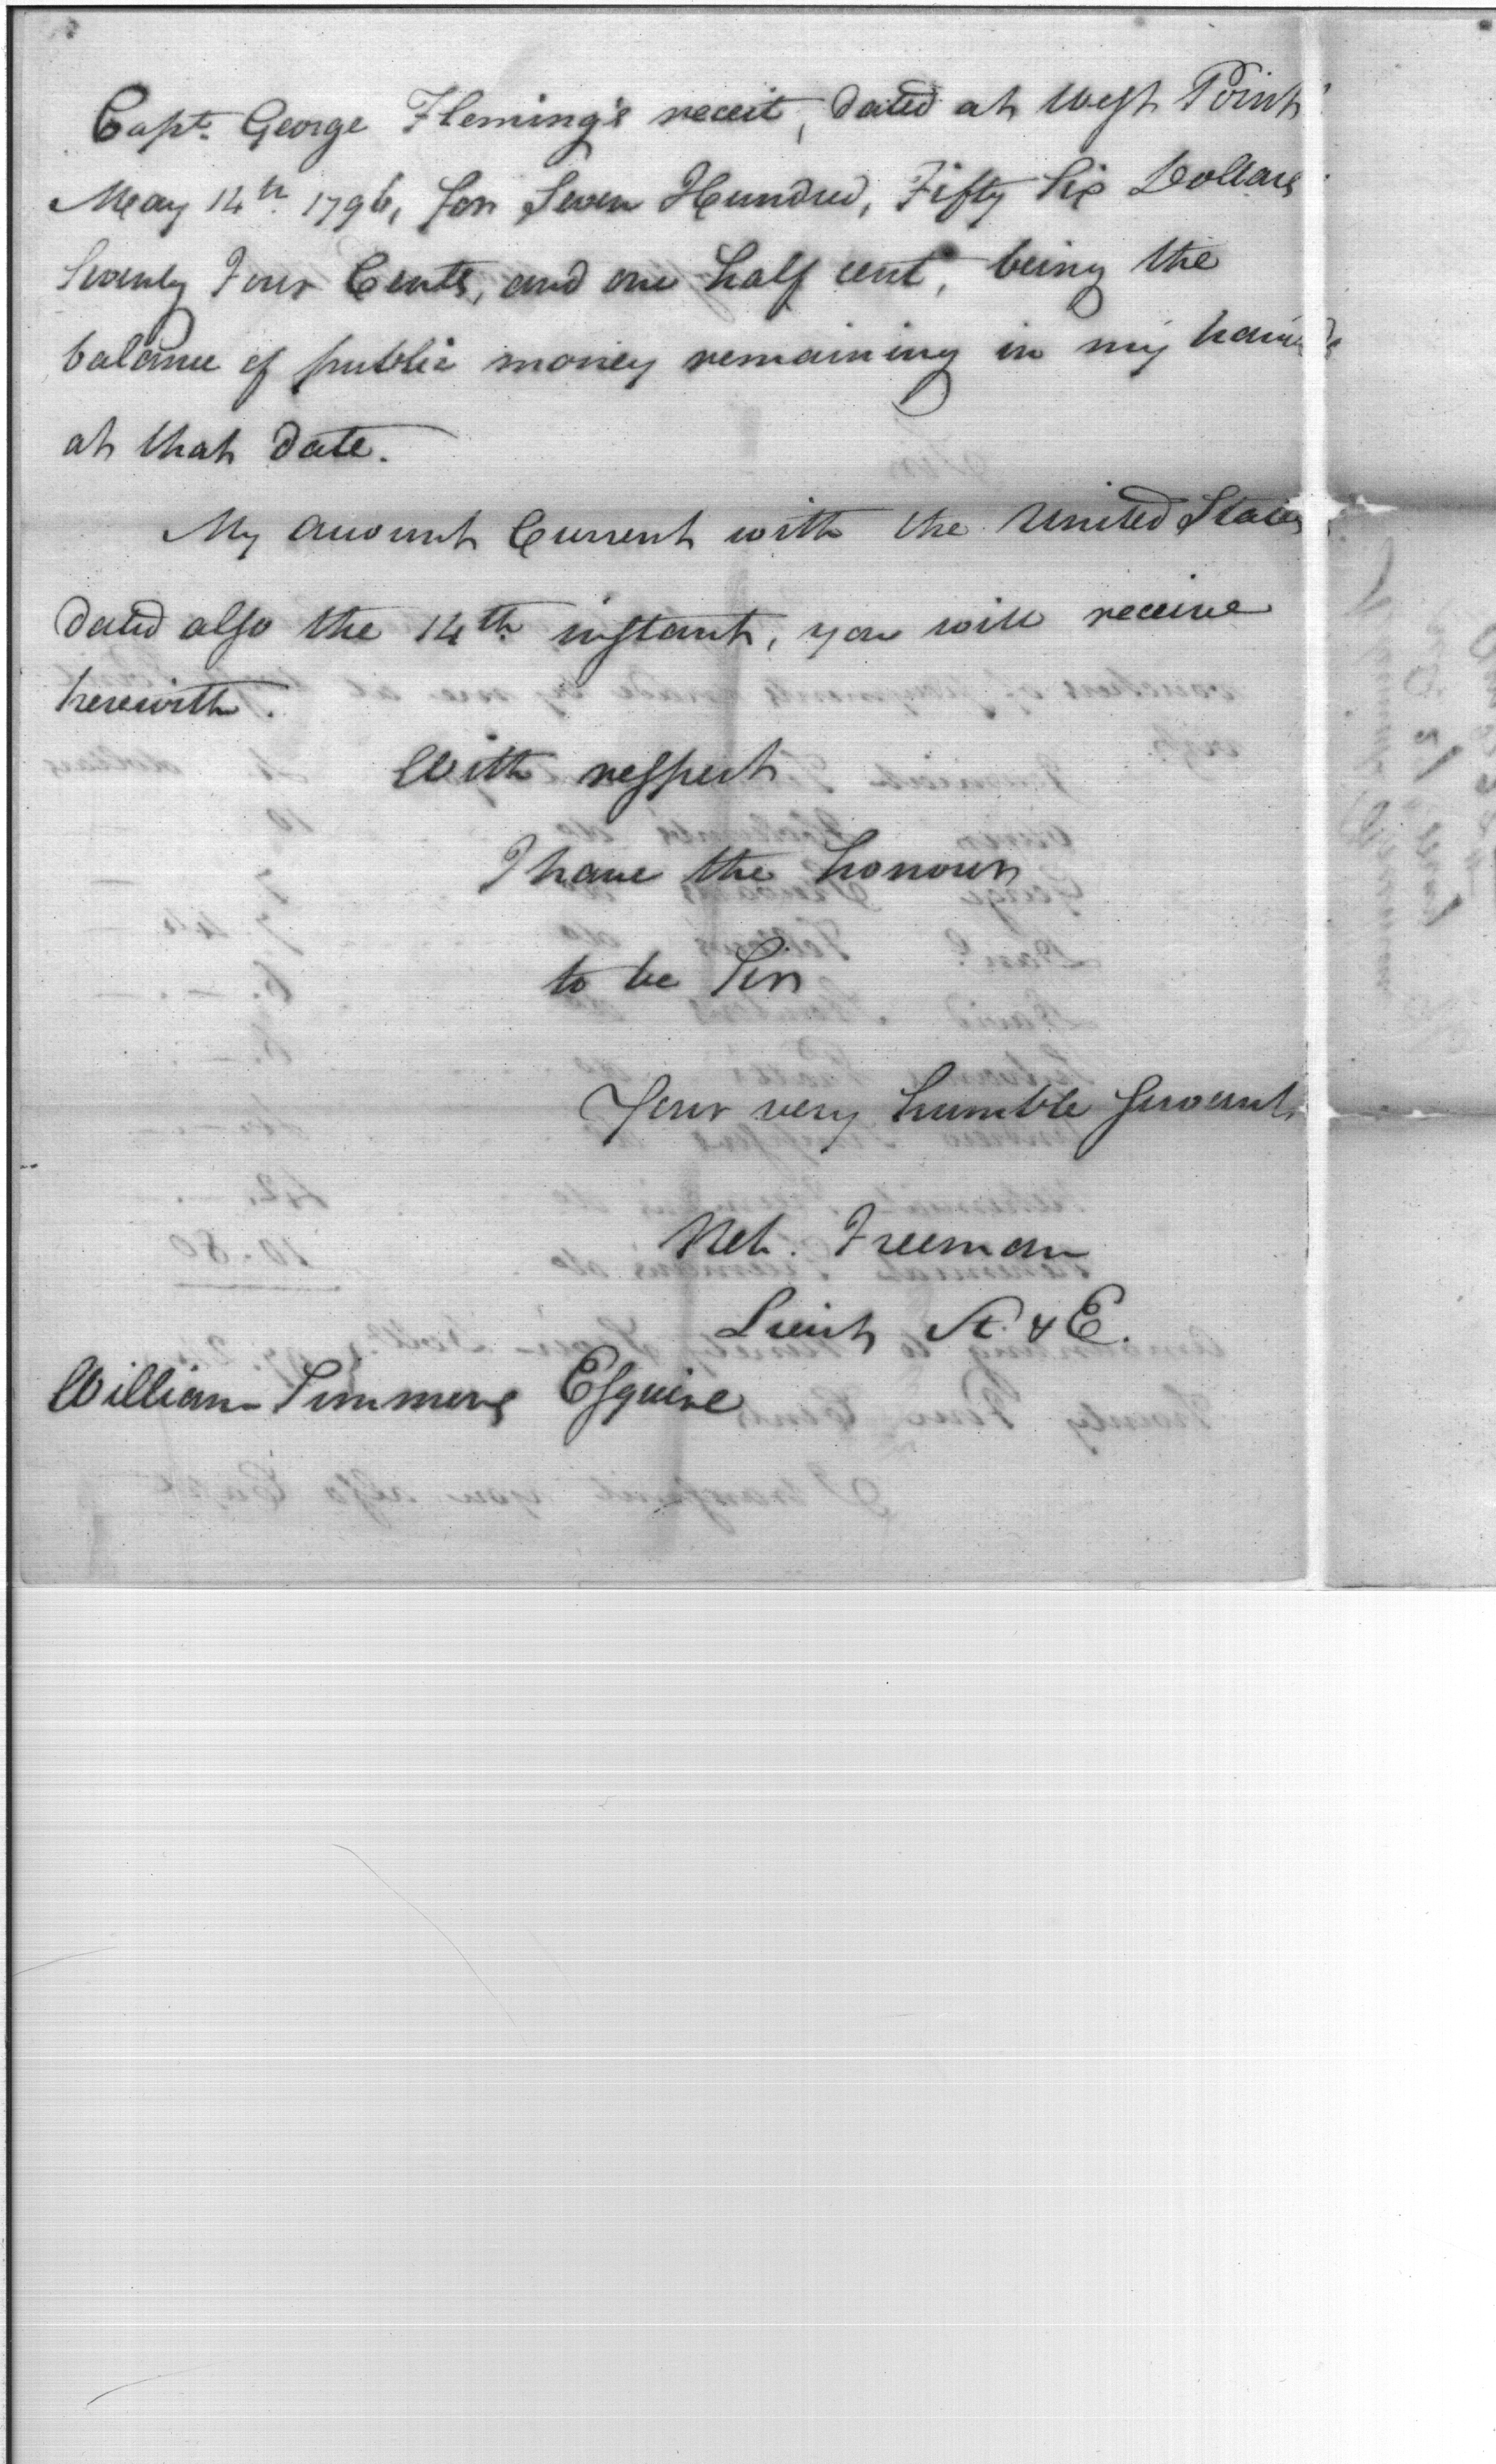 Capt. George Fleming's receit, dated at West Point
May 14th 1796, for Seven Hundred, Fifty Six Dollars
Seventy Four Cents, and one half cent, being the
balance of public money remaining in my hands
at that date.
My account Current with the United States
dated also the 14th instant, you will receive
herewith.
With respect
I have the honour
to be Sir
Your very humble Servant
Neh. Freeman
Lieut A. & E.
William Simmons Esquire